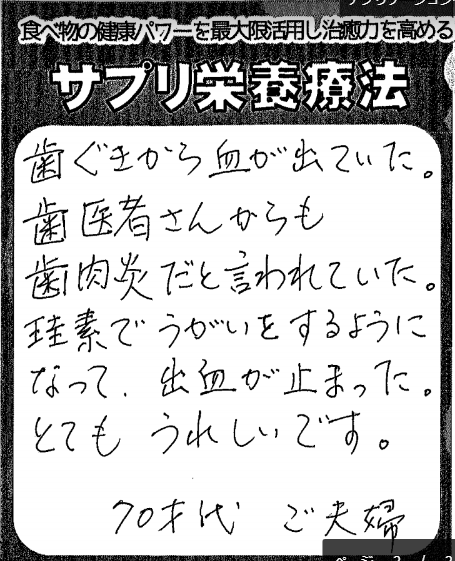 食べ物の健康パワーを最大限活用し治癒力を高める
サプリ栄養療法
歯ぐきから血が出ていた。
歯医者さんからも
歯肉炎だと言われていた。
珪素でうがいをするように
なって、出血が止まった。
とても うれしいです。
70才代 ご夫婦